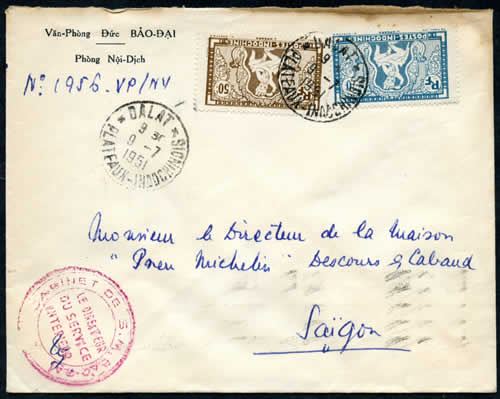 Văn-Phòng Đức BẢO-ĐẠI
Phòng Nội-Dịch
No: 1956 _ VP/NV
* DALAT *
9
9 - 7
1951
PLATEAUX-INDOCHINOIS
POSTES-INDOCHINE
50
POSTES-INDOCHINE
RF
DALAT
PLATEAUX-INDOCHINOIS
Monsieur le Directeur de la Maison
"Pneu Michelin" Descours & Cabaud
Saïgon
CABINET DE S.M.
LE DIRECTEUR
DU SERVICE
INTERIEUR